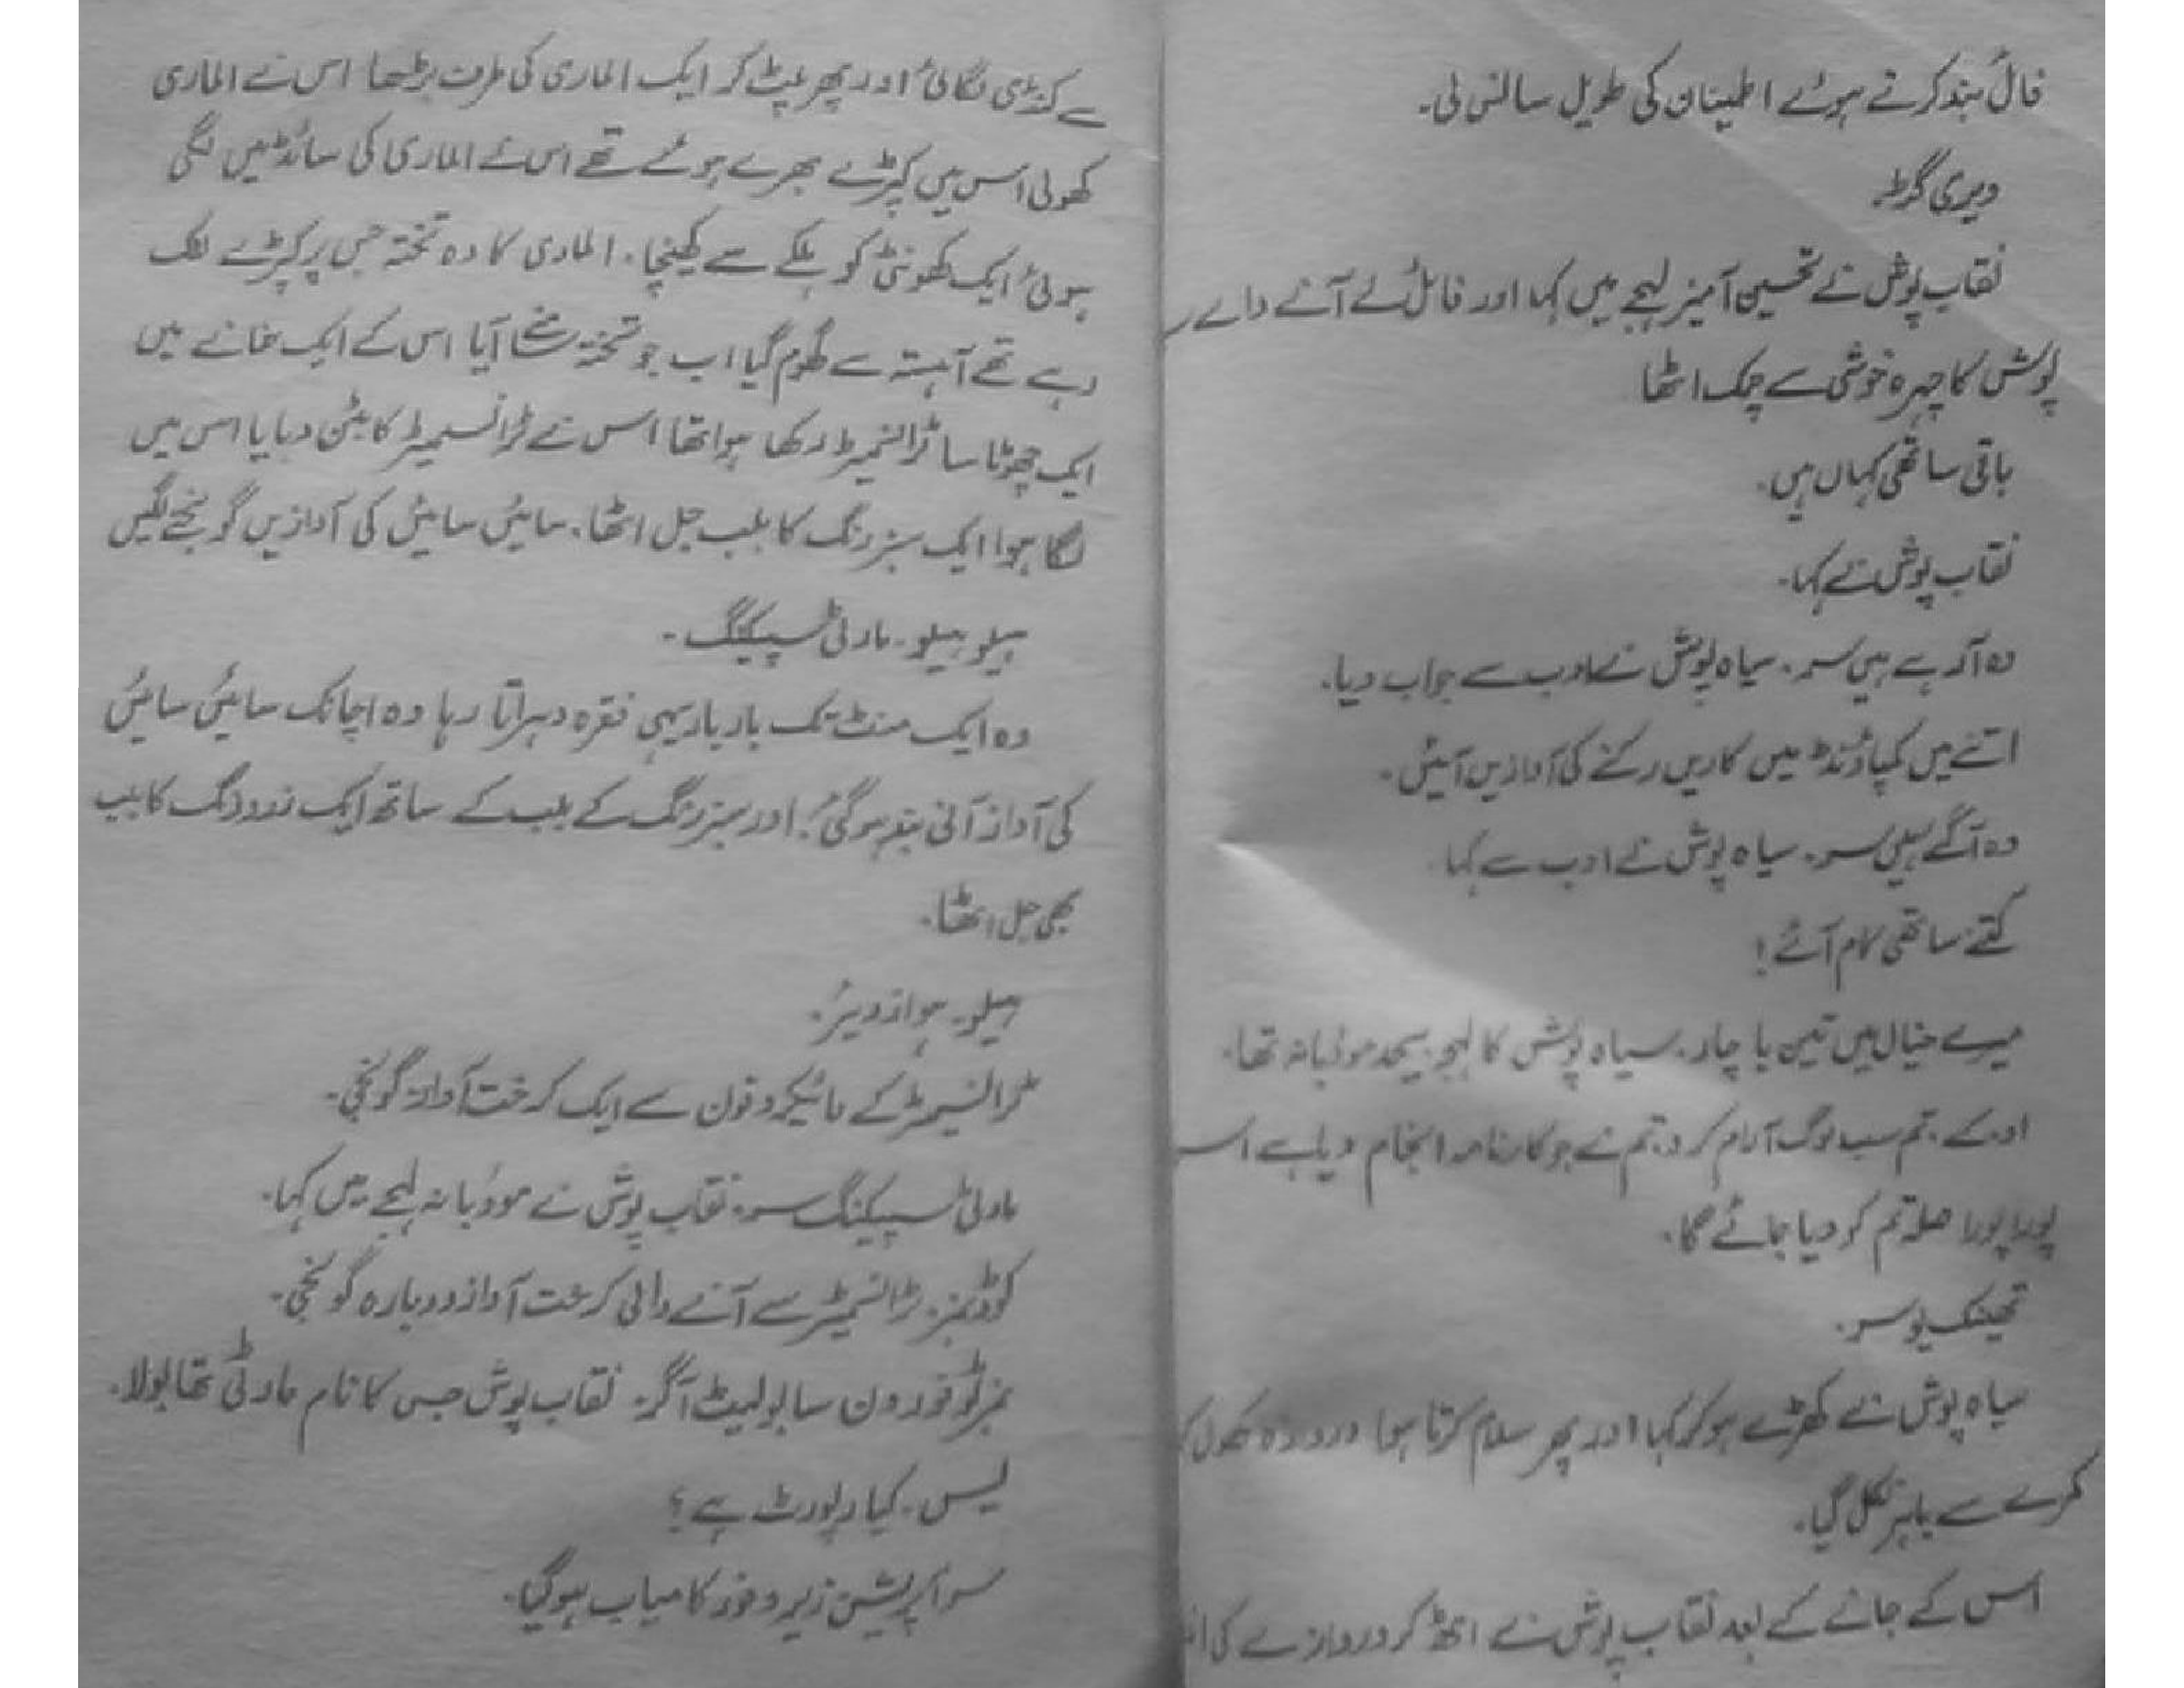 فائل بند کرتے ہوئے اطمینان کی طویل سانس لی۔
ویری گڈ۔
نقاب پوش نے تحسین آمیز لہجے میں کہا اور فائل لے آنے والے
پوش کا چہرہ خوشی سے چمک اٹھا
باقی ساتھی کہاں ہیں۔
نقاب پوش نے کہا۔
وہ آرہے ہیں سر۔ سیاہ پوش نے ادب سے جواب دیا۔
اتنے میں کمپاؤنڈ میں کاریں رکنے کی آوازیں آئیں۔
وہ آگئے ہیں سر۔ سیاہ پوش نے ادب سے کہا
کتنے ساتھی کام آئے!
میرے خیال میں تین یا چار۔ سیاہ پوش کا لہجہ بیحد مودبانہ تھا۔
او کے۔ تم سب لوگ آرام کرو۔ تم نے جو کارنامہ انجام دیا ہے اس
پورا پورا صلہ تم کو دیا جائے گا۔
تھینک یو سر۔
سیاہ پوش نے کھڑے ہو کر کہا اور پھر سلام کرتا ہوا دروازہ کھول
کمرے سے باہر نکل گیا۔
اس کے جانے کے بعد نقاب پوش نے اٹھ کر دروازے کی
سے کنڈی لگائی اور پھر پلٹ کر ایک الماری کی طرف بڑھا اس نے الماری
کھولی اس میں کپڑے بھرے ہوئے تھے اس نے الماری کی سائڈ میں لگی
ہوئی ایک کھونٹی کو ہلکے سے کھینچا۔ الماری کا وہ تختہ جس پر کپڑے لٹک
رہے تھے آہستہ سے گھوم گیا اب جو تختہ سامنے آیا اس کے ایک خانے میں
ایک چھوٹا سا ٹرانسمیٹر رکھا ہوا تھا اس نے ٹرانسمیٹر کا بٹن دبایا اس میں
لگا ہوا ایک سبز رنگ کا بلب جل اٹھا۔ سائیں سائیں کی آوازیں گونجنے لگیں
ہیلو ہیلو۔ مارٹی سپیکنگ۔
وہ ایک منٹ تک بار بار یہی فقرہ دہراتا رہا وہ اچانک سائیں سائیں
کی آواز آنی بند ہو گئی۔ اور سبز رنگ کے بلب کے ساتھ ایک زرد رنگ کا بلب
بھی جل اٹھا۔
ہیلو۔ ہو از دیئر۔
ٹرانسمیٹر کے مائیکروفون سے ایک کرخت آواز گونجی۔
مارٹی سپیکنگ سر۔ نقاب پوش نے مودبانہ لہجے میں کہا۔
کوڈ نمبر۔ ٹرانسمیٹر سے آنے والی کرخت آواز دوبارہ گونجی۔
نمبر ٹو فور ون سابولیٹ آگر۔ نقاب پوش جس کا نام مارٹی تھا بولا۔
یس۔ کیا رپورٹ ہے؟
سر آپریشن زیرو فور کامیاب ہو گیا۔